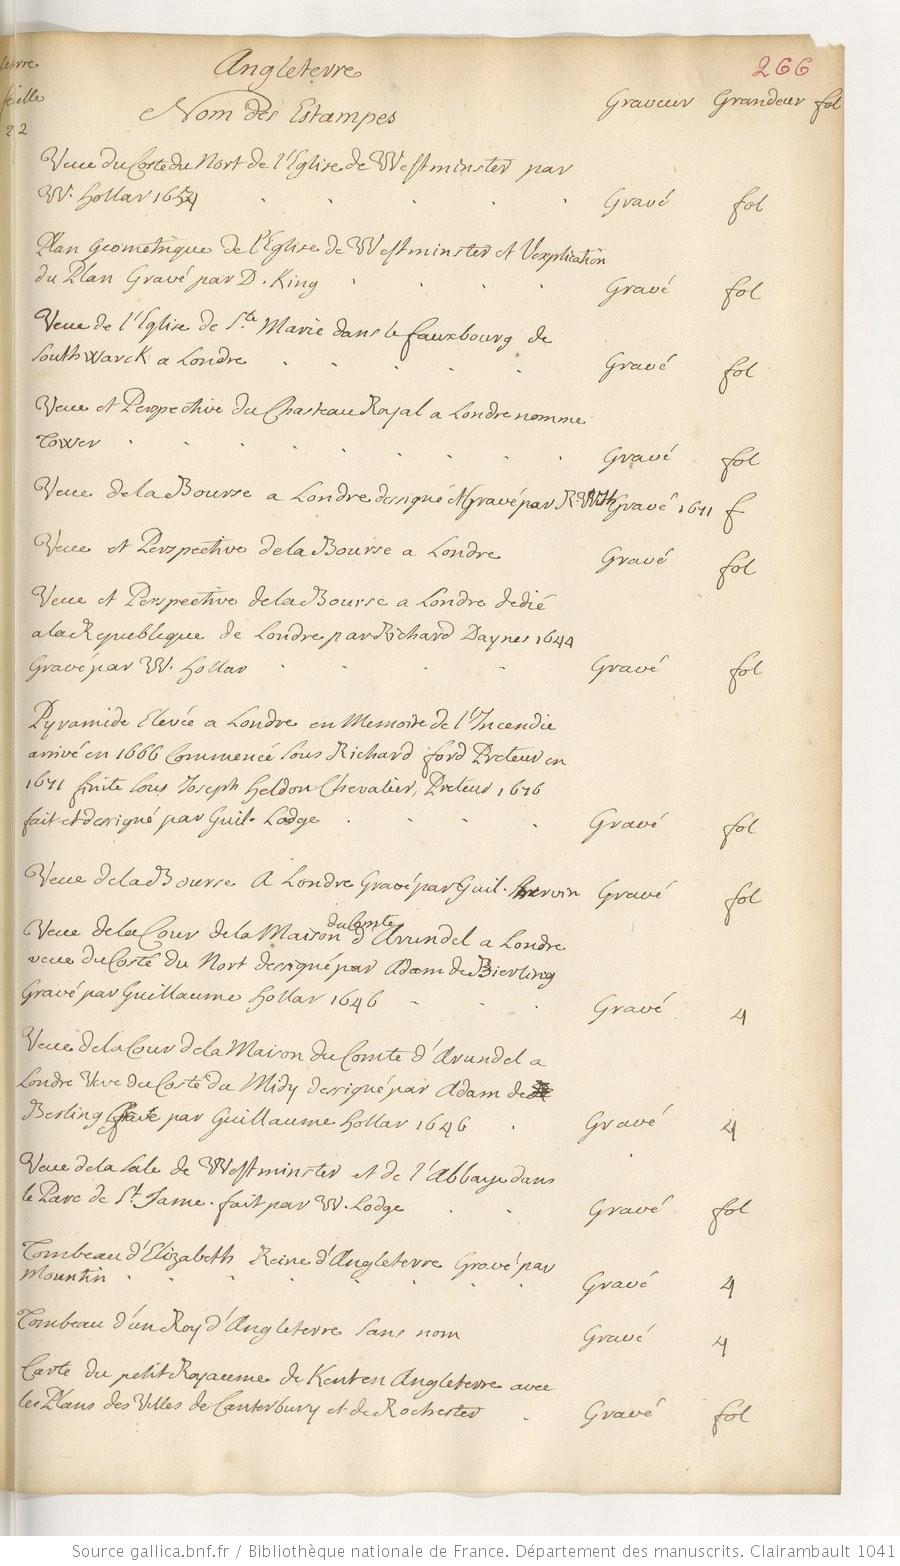 Angleterre
266
Nom des Estampes Graveur Grandeur fol
Veue du Costé du Nort de l'Eglise de Westminster par
W. Hollar 1654 Gravé fol
Plan Geometrique de l'Eglise de Westminster et l'explication
du Plan Gravé par D. King Gravé fol
Veue de l'Eglise de Ste Marie dans le fauxbourg de
Southwarck a Londre Gravé fol
Veue et Perspective du Chasteau Royal a Londre nomme
Tower Gravé fol
Veue de la Bourse a Londre dessigné et Gravé par R. Gravé 1671 f
Veue et Perspective de la Bourse a Londre Gravé fol
Veue et Perspective de la Bourse a Londre dedié
a la Republeque de Londre par Richard Daynes 1644
Gravé par W. Hollar Gravé fol
Pyramide Elevée a Londre en Memoire de l'Incendie
arrivé en 1666 Commencé sous Richard ford Preteur en
1671 finite sous Joseph Heldon Chevalier, Preteur 1676
fait et dessigné par Guil. Lodge Gravé fol
Veue de la Bourse A Londre Gravé par Guil. Gravé fol
Veue de la Cour de la Maison du Comte d'Arundel a Londre
veue du Costé du Nort dessigné par Adam de Bierling
Gravé par Guillaume Hollar 1646 Gravé 4
Veue de la Cour de la Maison du Comte d'Arundel a
Londre Veue du Costé du Midy dessigné par Adam de
Berling par Guillaume Hollar 1646 Gravé 4
Veue de la Sale de Westminster et de l'Abbaye dans
le Parc de St Jame. fait par W. Lodge Gravé fol
Tombeau d'Elizabeth Reine d'Angleterre Gravé par
Mountin Gravé 4
Tombeau d'un Roy d'Angleterre sans nom Gravé 4
Carte du petit Royaume de Kent en Angleterre avec
les Plans des Villes de Canterbury et de Rochester Gravé fol
Source gallica.bnf.fr / Bibliothèque nationale de France. Département des manuscrits. Clairambault 1041